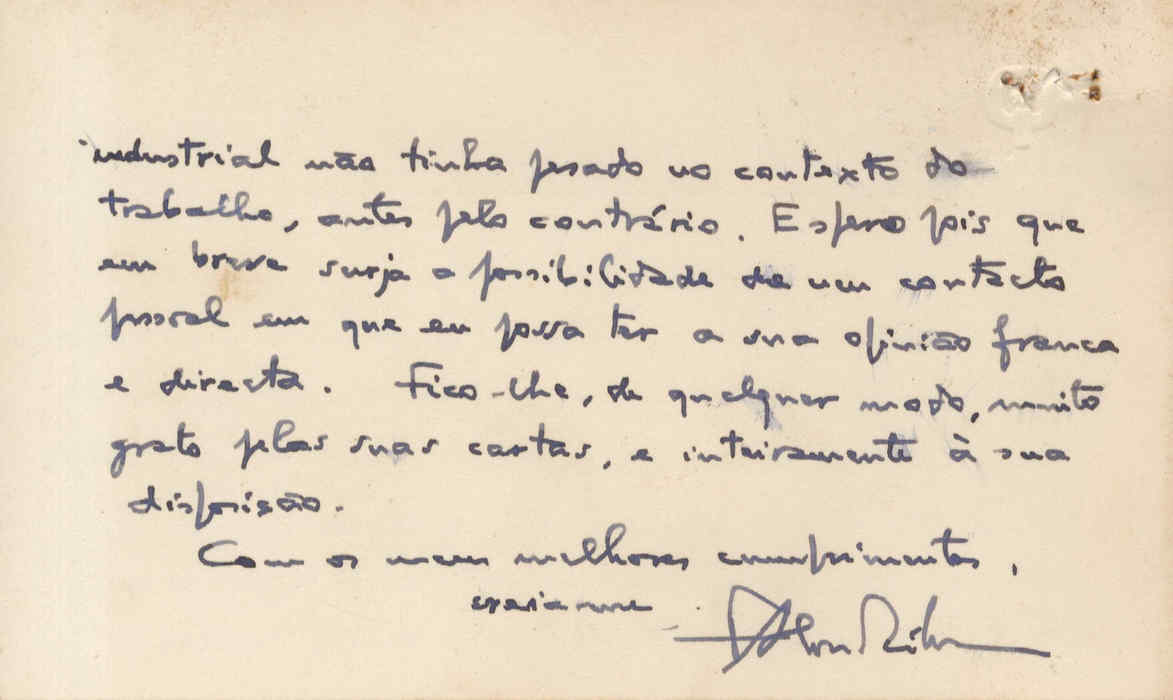 industrial não tinha pesado no contexto do
trabalho, antes pelo contrário. Espero pois que
em breve surja a possibilidade de um contacto
pessoal em que eu possa ter a sua opinião franca
e directa. Fico-lhe, de qualquer modo, muito
grato pelas suas cartas, e inteiramente à sua
disposição.
Com os meus melhores cumprimentos,